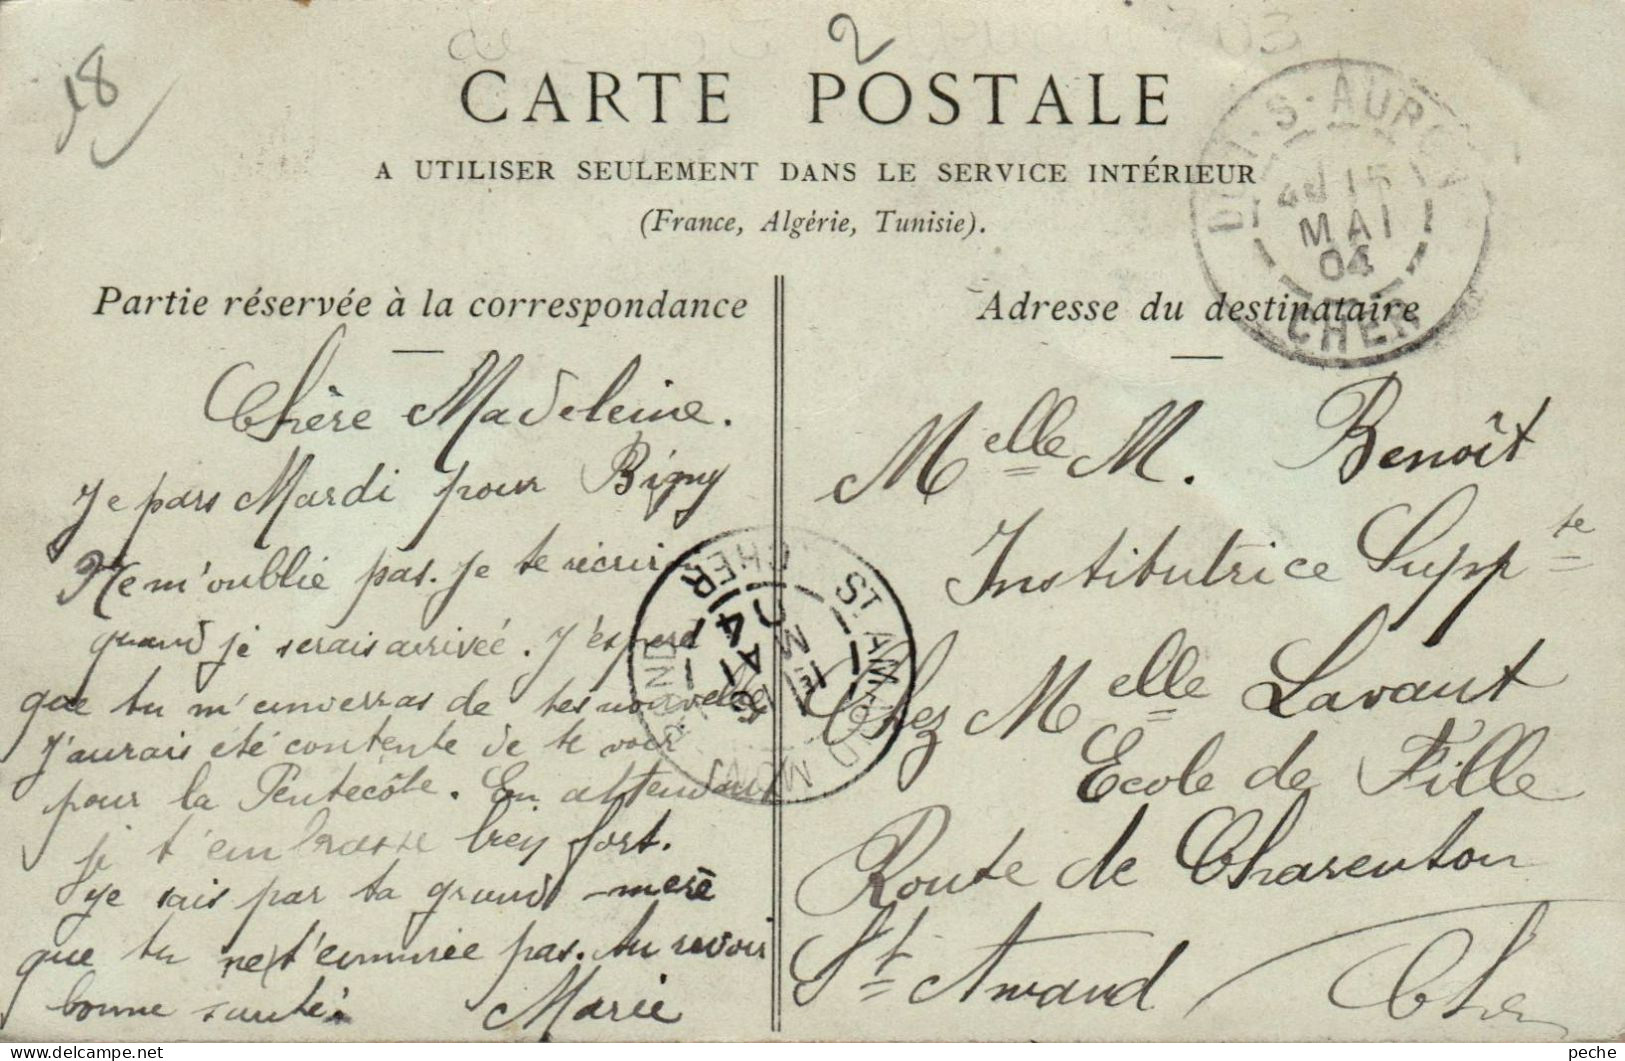 18
2
CARTE POSTALE
A UTILISER SEULEMENT DANS LE SERVICE INTÉRIEUR
(France, Algérie, Tunisie).
DUN-S-AURON
15
MAI
04
CHER
Partie réservée à la correspondance
Chère Madeleine.
Je pars Mardi pour Bigny
Ne m'oublie pas. Je te récrir
quand je serais arrivée. J'éspere
que tu m'enverras de tes nouvelles
J'aurais été contente de te voir
pour la Pentecôte. En attendant
je t'embrasse bien fort.
Je sais par ta grand-mère
que tu ne t'ennuiée pas. Au revoir
bonne santé.
Marie
ST AMAND MONT-ROND
MAI
04
CHER
Adresse du destinataire
Melle M. Benoît
Institutrice Suppte
Chez Melle Lavaut
Ecole de Fille
Route de Charenton
St Amand
Cher
peche